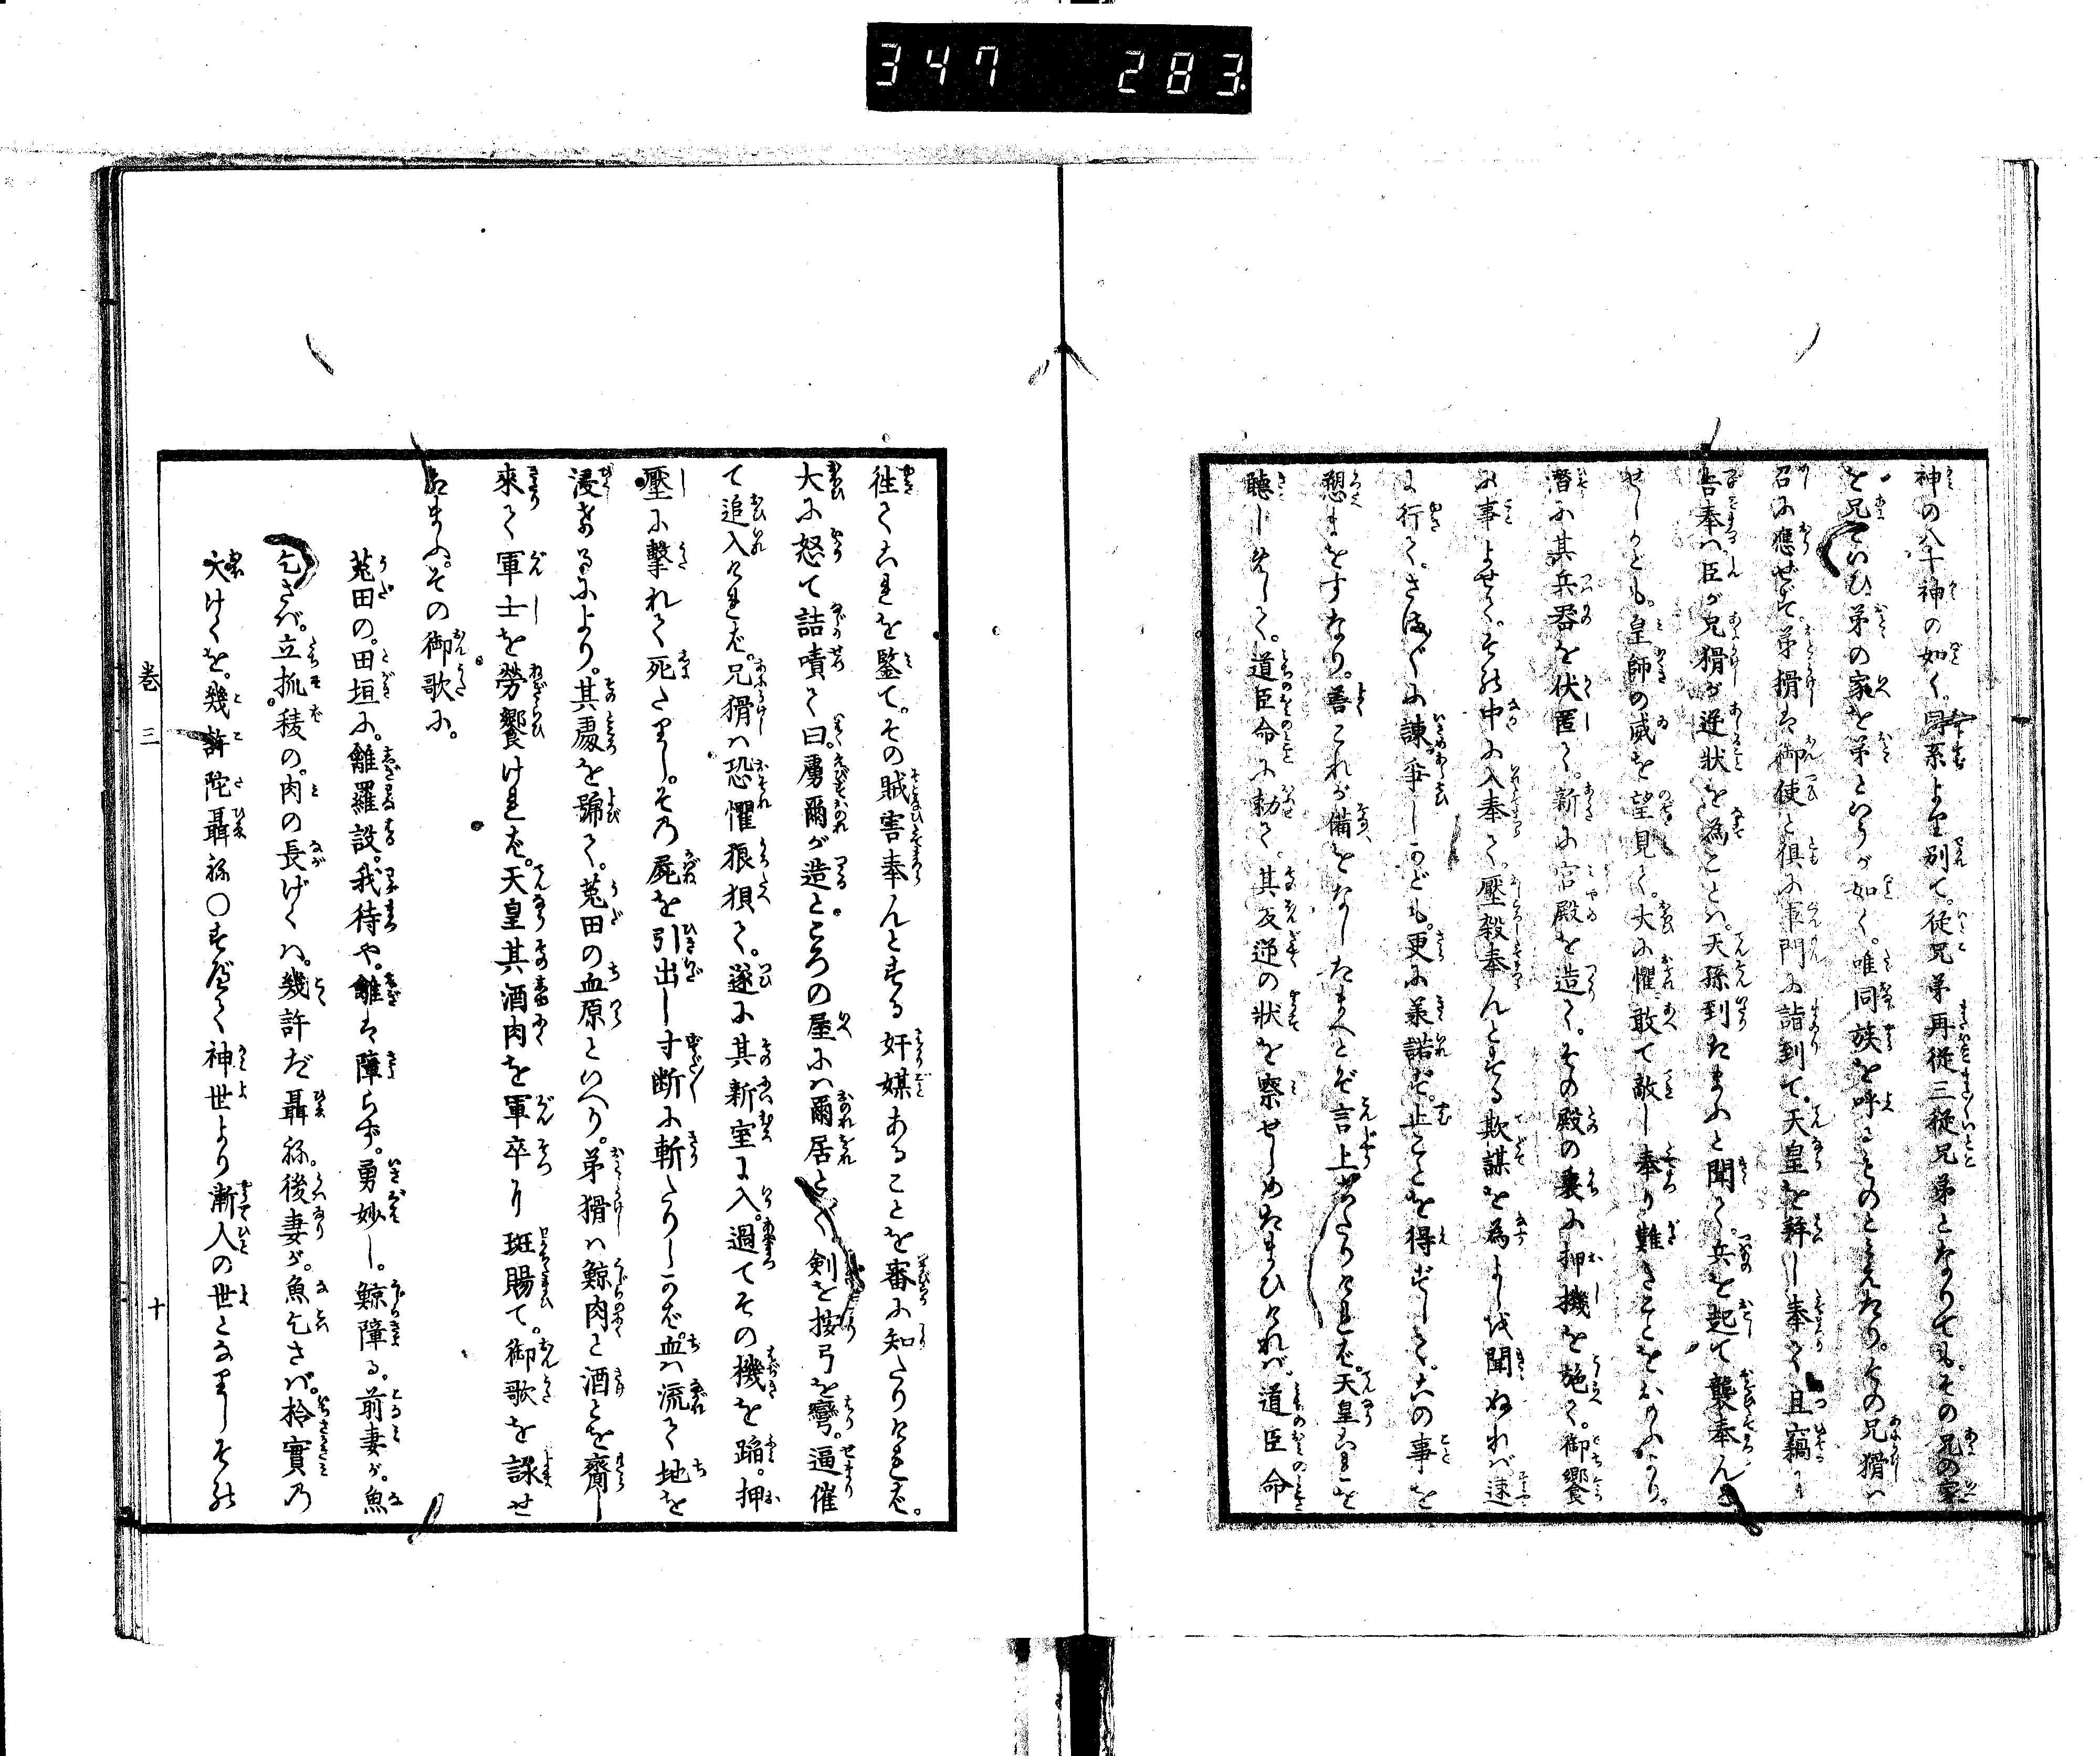 347 283
神の八十神の如く。同系より別て。従兄弟再従三従兄弟となりても。その兄の家
を兄といひ弟の家を弟といふが如く。唯同族を呼るものときこえたり。その兄猾ハ
召に應せず。弟猾は御使と倶に軍門に詣到て。天皇を拜し奉て且竊に
告奉ハ。臣が兄猾が逆状を為ことハ。天孫到たまふと聞て。兵を起て襲奉んと
せしかども。皇師の威を望見て。大に懼敢て敵し奉り難きことをおもふより。
潜に其兵器を伏匿て。新に宮殿を造て。その殿の裏に押機を施て。御饗
に事よせて。その中に入奉て。壓殺奉んとする欺謀を為よし伎聞ぬれバ速
に行て。さま〴〵に諫爭しかども。更に承諾ず。止ことを得ずして。此の事を
愬まをすなり。善これが備をなしたまへとぞ言上したりければ。天皇これを
聽しめして。道臣命に勅て。其反逆の状を察せしめたまひければ。道臣命
往てこれを鑒て。その賊害奉んとする奸媒あることを審に知たりければ。
大に怒て詰嘖て曰。虜爾が造ところの屋にハ爾居とて。剣を按弓を彎。逼催
て追入ければ。兄猾ハ恐懼狼狽て。遂に其新室に入。過てその機を蹈。押
壓に擊れて死たりし。その屍を引出し寸断に斬たりしかば。血ハ流て地を
浸するにより。其處を號て。菟田の血原といへり。弟猾ハ鯨肉と酒とを齎し
來て軍士を勞饗ければ。天皇其酒肉を軍卒に班賜て。御歌を謡せ
たまふ。その御歌に。
菟田の。田垣に。鴫羅設。我待や。鴫は障らず。勇妙し。鯨障る。前妻が。魚
乞さば。立抓稜の。肉の長げくハ。幾許だ聶ね。後妻が。魚乞さバ。拾實乃
大けくを。幾許陀聶ね○すべて神世より漸人の世となりしその
巻三
十